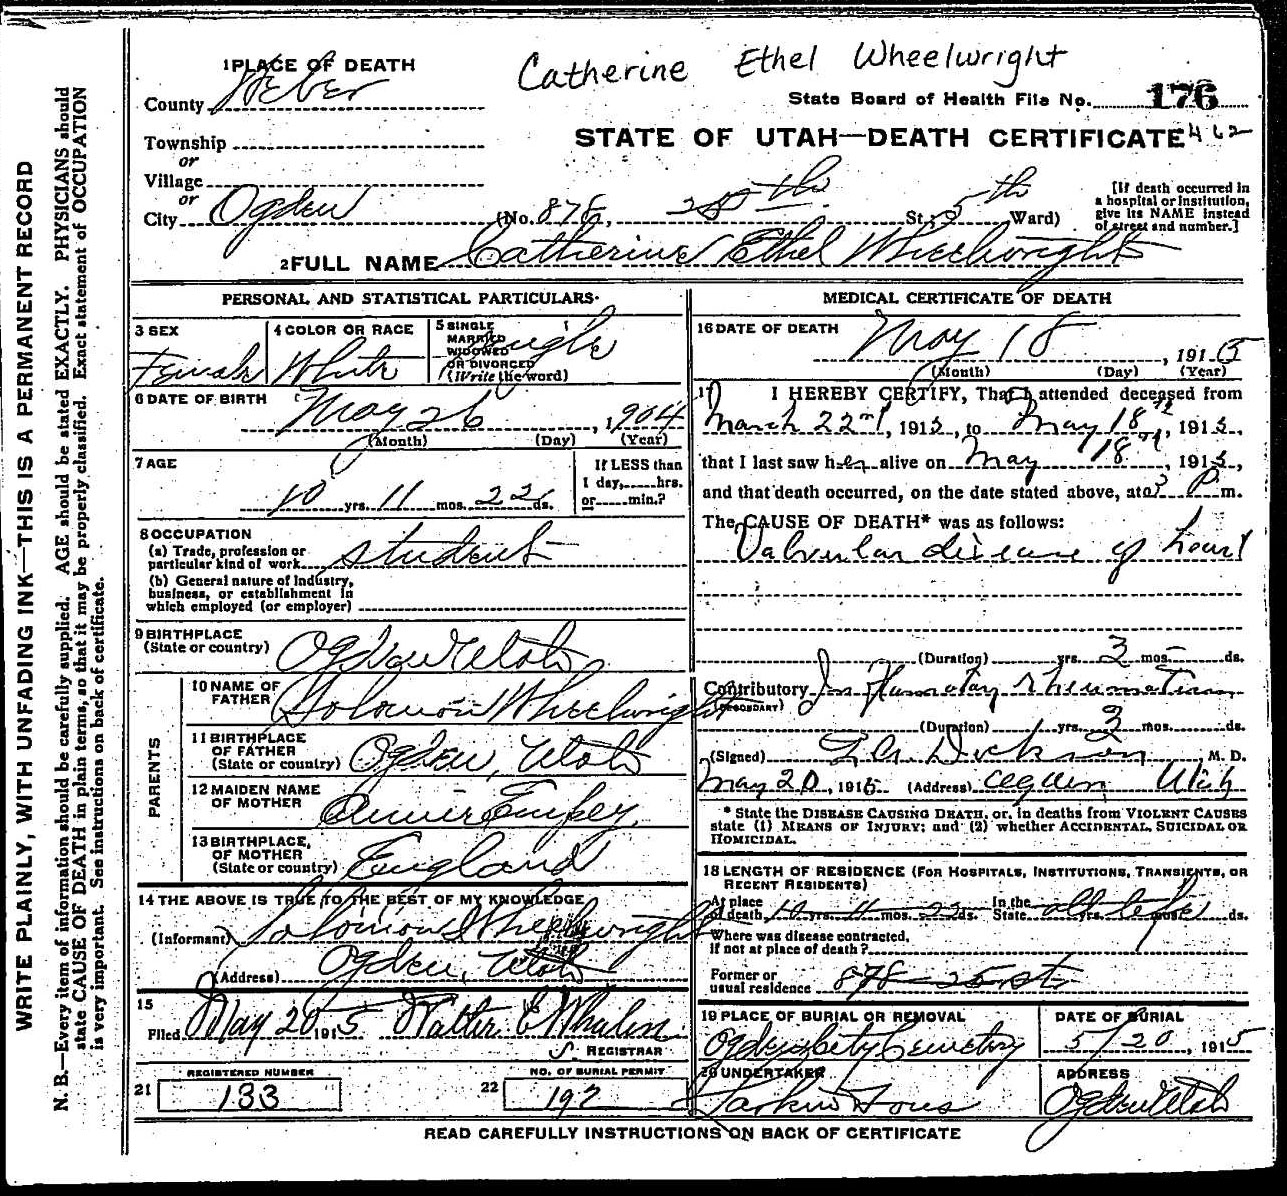 Catherine Ethel Wheelwright
1 PLACE OF DEATH
County Weber
State Board of Health File No. 176
Township
or
Village
or
City Ogden
STATE OF UTAH—DEATH CERTIFICATE 462
(No. 878, 25th St.; 5th Ward)
[If death occurred in
a hospital or institution,
give its NAME instead
of street and number.]
2 FULL NAME Catherine Ethel Wheelwright
PERSONAL AND STATISTICAL PARTICULARS
3 SEX
Female
4 COLOR OR RACE
White
5 SINGLE
MARRIED
WIDOWED
OR DIVORCED
(Write the word)
Single
6 DATE OF BIRTH
May 26, 1904
(Month) (Day) (Year)
7 AGE
10 yrs. 11 mos. 22 ds.
If LESS than
1 day, hrs.
or min.?
8 OCCUPATION
(a) Trade, profession or
particular kind of work student
(b) General nature of industry,
business, or establishment in
which employed (or employer)
9 BIRTHPLACE
(State or country) Ogden Utah
PARENTS
10 NAME OF
FATHER Solomon Wheelwright
11 BIRTHPLACE
OF FATHER
(State or country) Ogden, Utah
12 MAIDEN NAME
OF MOTHER Annie Empey
13 BIRTHPLACE,
OF MOTHER
(State or country) England
14 THE ABOVE IS TRUE TO THE BEST OF MY KNOWLEDGE
(Informant) Solomon Wheelwright
(Address) Ogden, Utah
15
Filed May 20 1915 Walter E Whalen
S. REGISTRAR
21 REGISTERED NUMBER
133
22 NO. OF BURIAL PERMIT
197
MEDICAL CERTIFICATE OF DEATH
16 DATE OF DEATH
May 18, 1915
(Month) (Day) (Year)
17 I HEREBY CERTIFY, That I attended deceased from
March 22nd, 1915, to May 18th, 1915,
that I last saw her alive on May 18th, 1915,
and that death occurred, on the date stated above, at 3 P m.
The CAUSE OF DEATH* was as follows:
Valvular disease of heart
(Duration) yrs. 3 mos. ds.
Contributory Inflamatory rheumatism
(SECONDARY)
(Duration) 1 yrs. 3 mos. ds.
(Signed) Dickson M. D.
May 20, 1915 (Address) Ogden Utah
* State the DISEASE CAUSING DEATH, or, in deaths from VIOLENT CAUSES
state (1) MEANS OF INJURY; and (2) whether ACCIDENTAL, SUICIDAL OR
HOMICIDAL.
18 LENGTH OF RESIDENCE (FOR HOSPITALS, INSTITUTIONS, TRANSIENTS, OR
RECENT RESIDENTS)
At place
of death 10 yrs. 11 mos. 22 ds. In the
State all life yrs. mos. ds.
Where was disease contracted,
if not at place of death?
Former or
usual residence 878 25 st
19 PLACE OF BURIAL OR REMOVAL
Ogden City Cemetery
DATE OF BURIAL
5/20, 1915
20 UNDERTAKER
Larkin & Sons
ADDRESS
Ogden Utah
READ CAREFULLY INSTRUCTIONS ON BACK OF CERTIFICATE
WRITE PLAINLY, WITH UNFADING INK—THIS IS A PERMANENT RECORD
N. B.—Every item of information should be carefully supplied. AGE should be stated EXACTLY. PHYSICIANS should
state CAUSE OF DEATH in plain terms, so that it may be properly classified. Exact statement of OCCUPATION
is very important. See instructions on back of certificate.